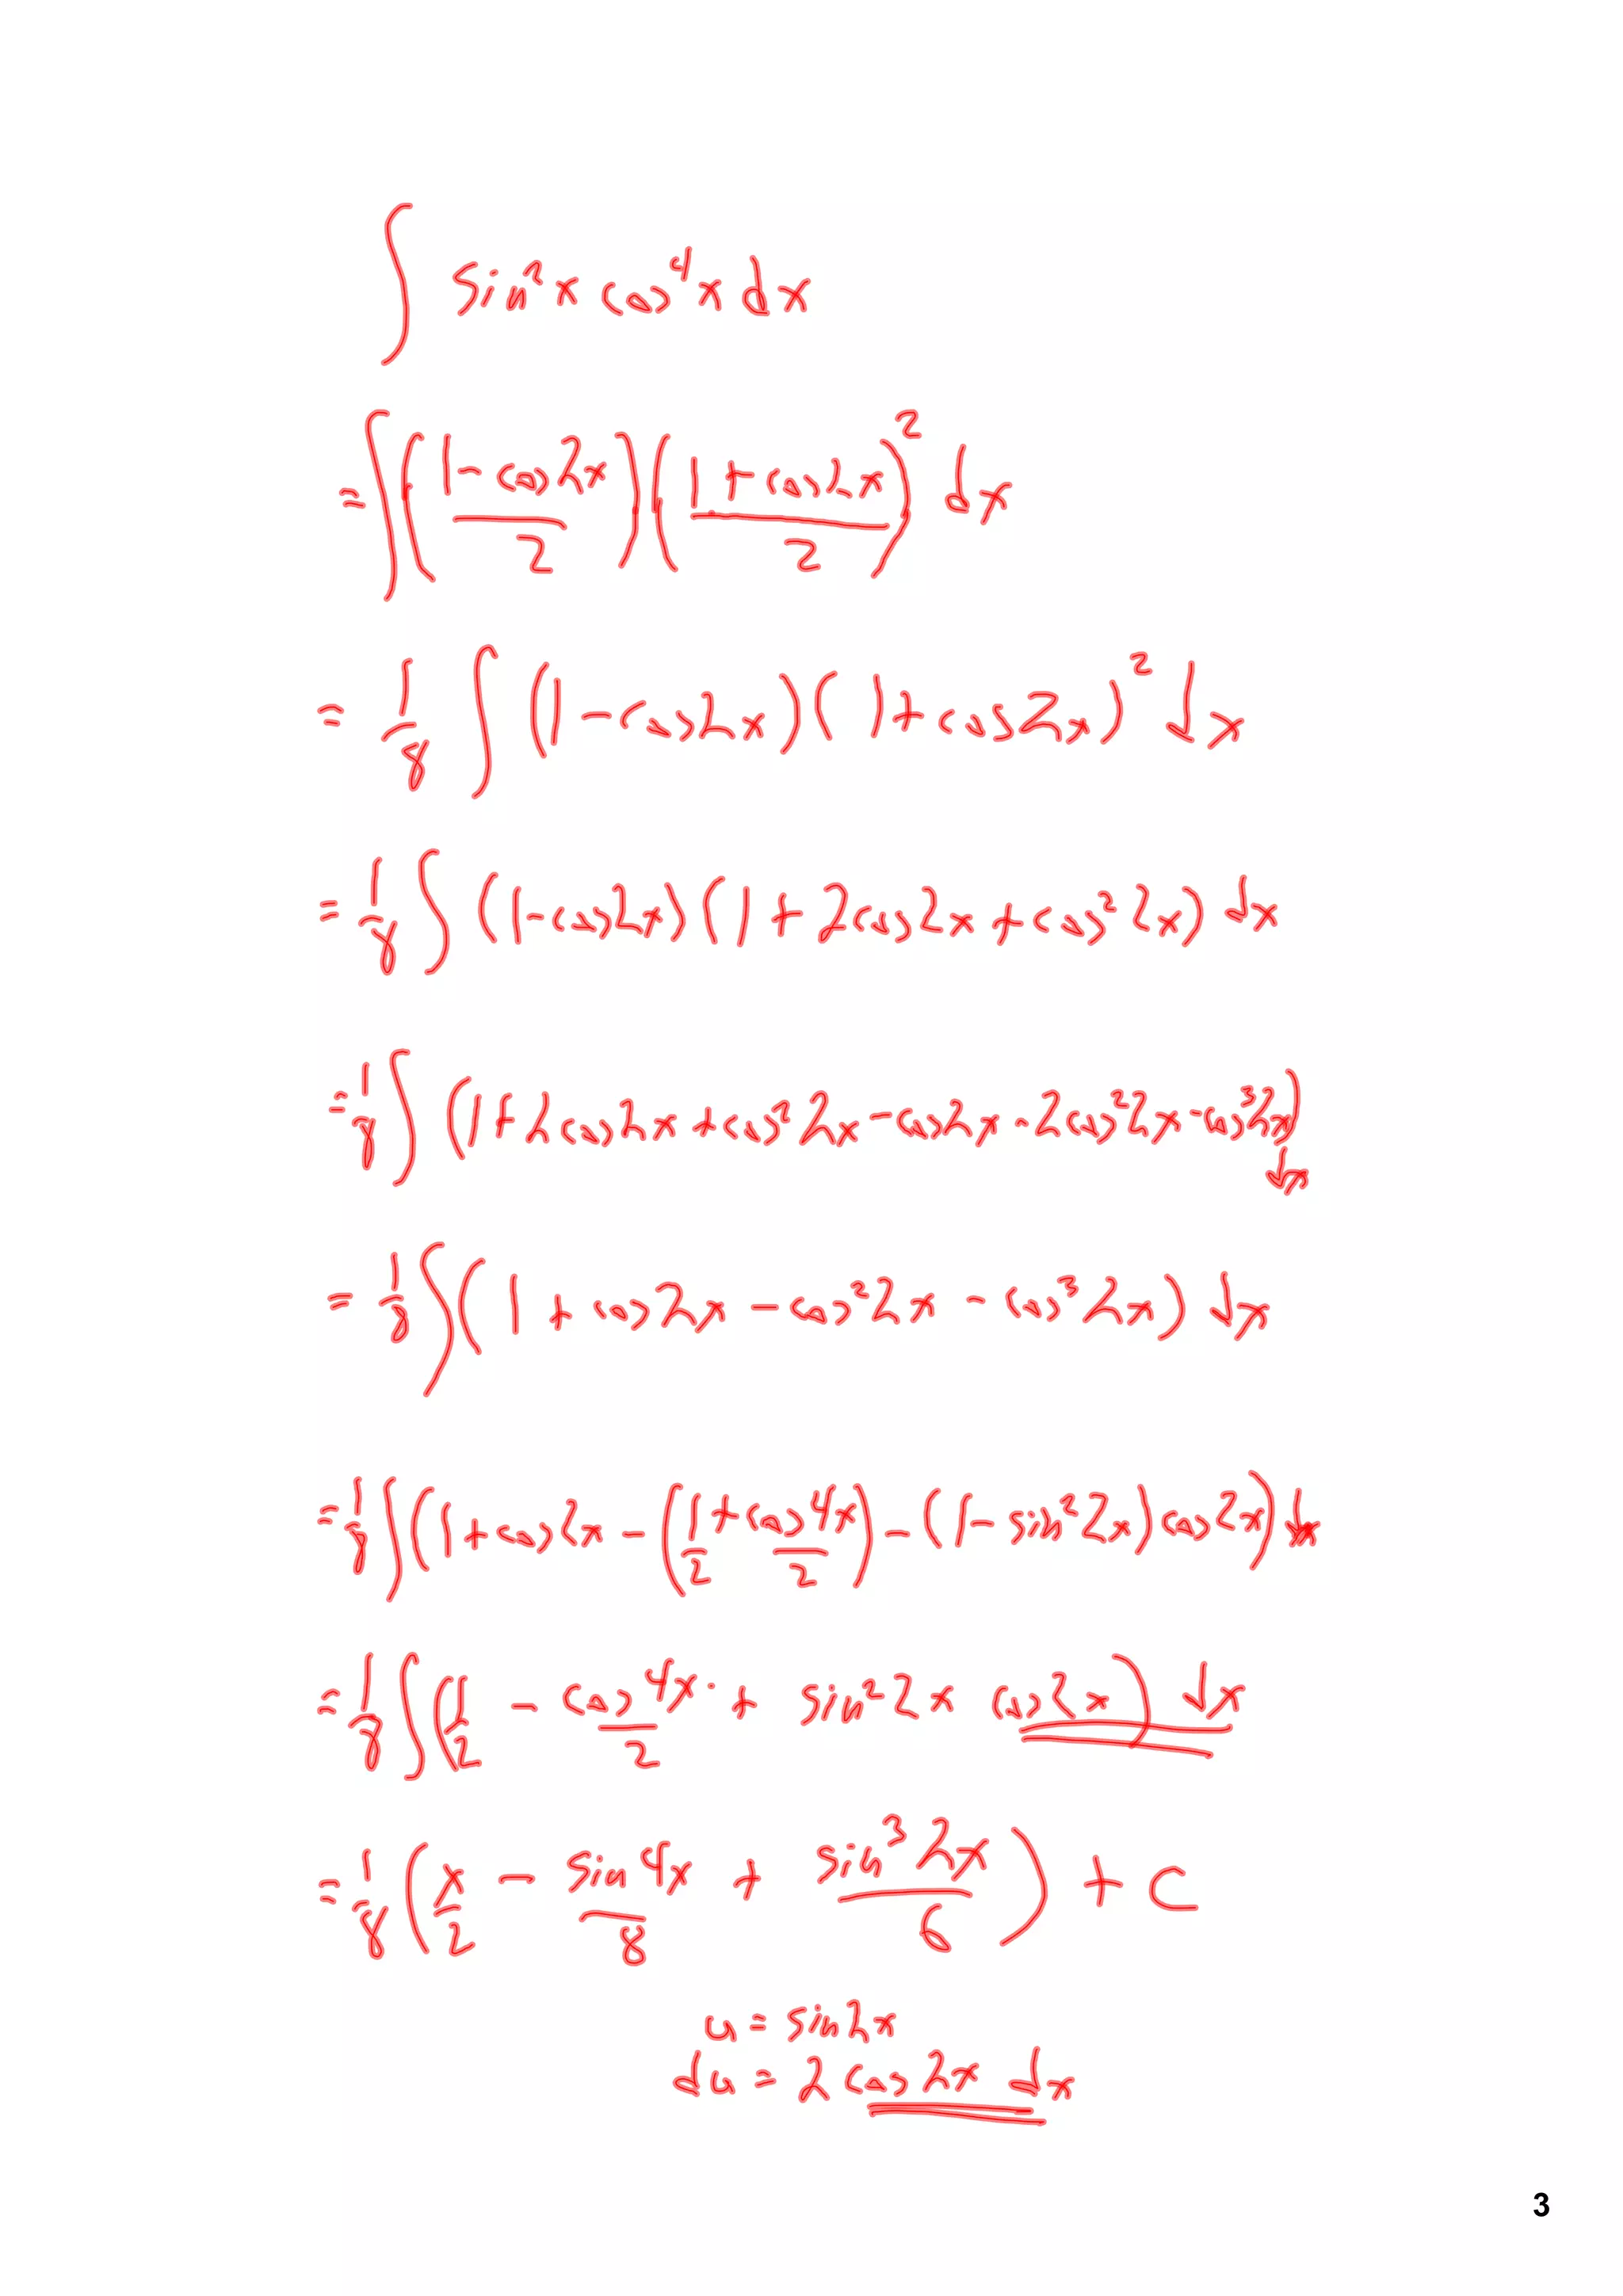 ∫ sin²x cos⁴x dx
= ∫ ((1 - cos2x)/2) ((1 + cos2x)/2)² dx
= 1/8 ∫ (1 - cos2x)(1 + cos2x)² dx
= 1/8 ∫ (1 - cos2x)(1 + 2cos2x + cos²2x) dx
= 1/8 ∫ (1 + 2cos2x + cos²2x - cos2x - 2cos²2x - cos³2x) dx
= 1/8 ∫ (1 + cos2x - cos²2x - cos³2x) dx
= 1/8 ∫ (1 + cos2x - (1/2 + cos4x/2) - (1 - sin²2x)cos2x) dx
= 1/8 ∫ (1/2 - cos4x/2 + sin²2x cos2x) dx
= 1/8 (x/2 - sin4x/8 + sin³2x/6) + C
u = sin2x
du = 2cos2x dx
3